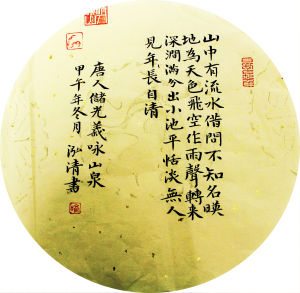 山中有流水借問不知名暎
地為天色飛空作雨聲轉来
深澗滿分出小池平恬淡無人
見年長自清
唐人儲光羲咏山泉
甲午年冬月泓清書